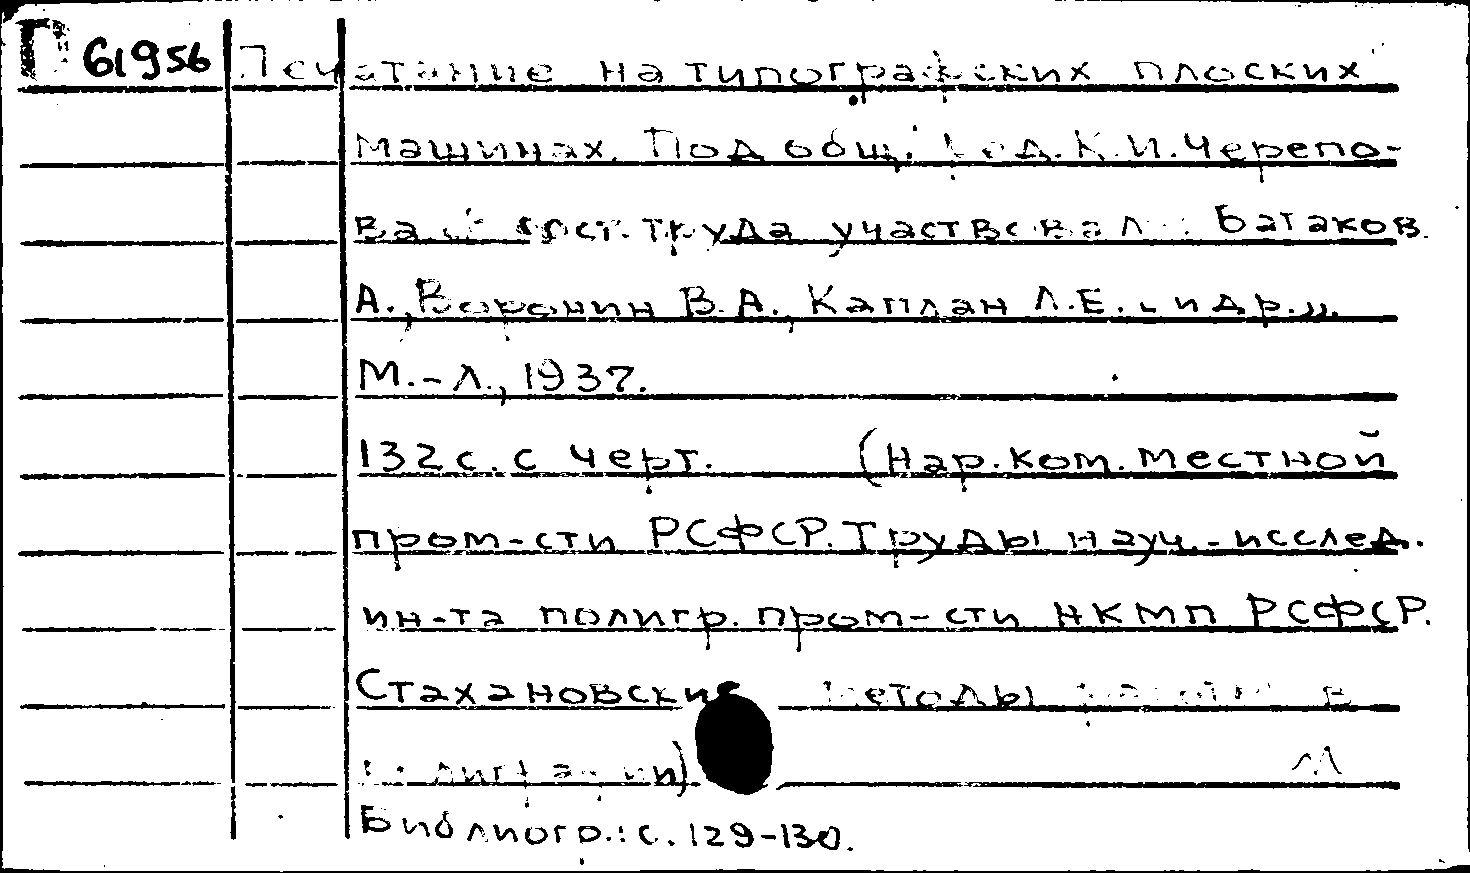 П 61956 Печатание на типографских плоских
машинах. Под общ. ред. К.И. Черепо-
ва. В сост. труда участвовали: Батаков
А., Воронин В.А., Каплан Л.Е. "и др.".
М.-Л., 1937.
132 с. с черт. (Нар. ком. местной
пром-сти РСФСР. Труды науч.-исслед.
ин-та полигр. пром-сти НКМП РСФСР.
Стахановские методы работы в
полиграфии)
М
Библиогр.: с. 129-130.